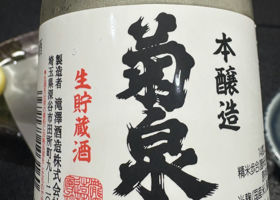 本醸造
菊泉
生貯蔵酒
製造者 滝澤酒造株式会
埼玉県深谷市田所町九‐二〇
精米歩合